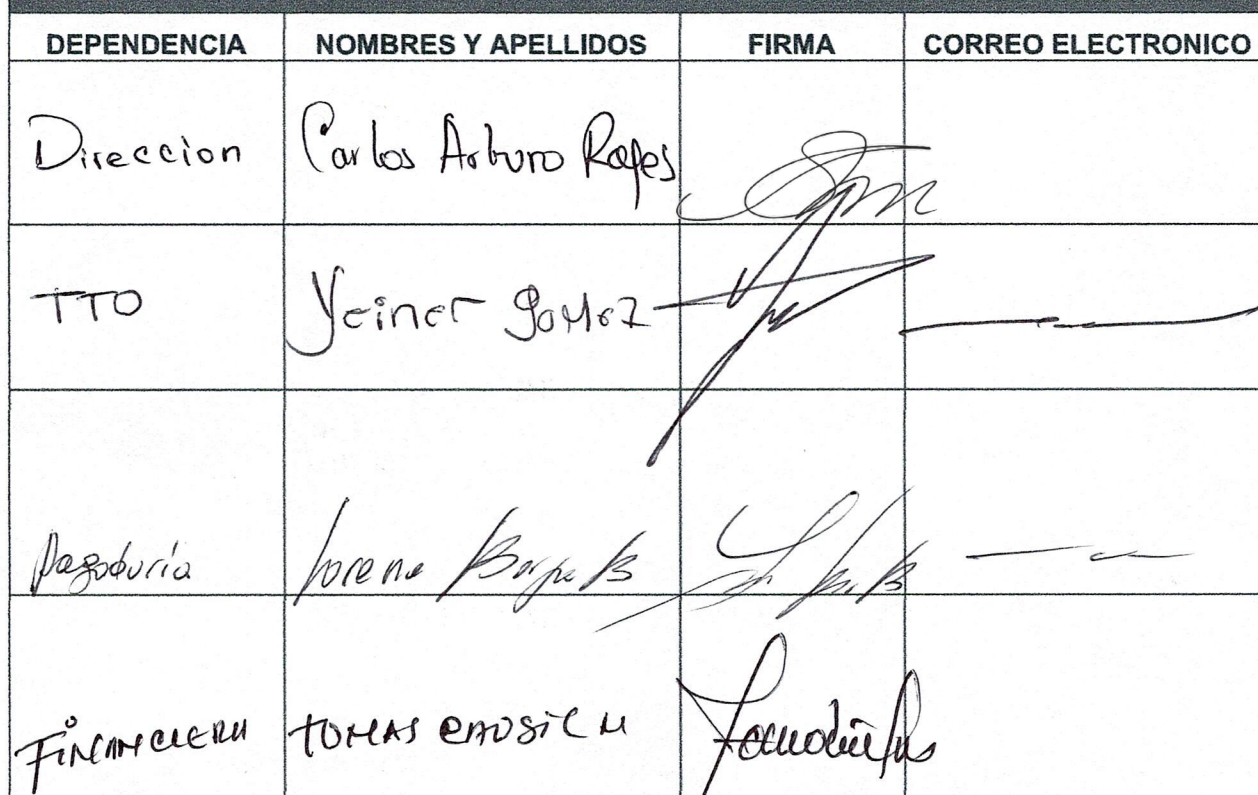 DEPENDENCIA NOMBRES Y APELLIDOS FIRMA CORREO ELECTRONICO
Direccion Carlos Arturo
TTO Yeiner Gomez
Pagaduría Lorena
FINANCIERA TOMAS CAUSIL M